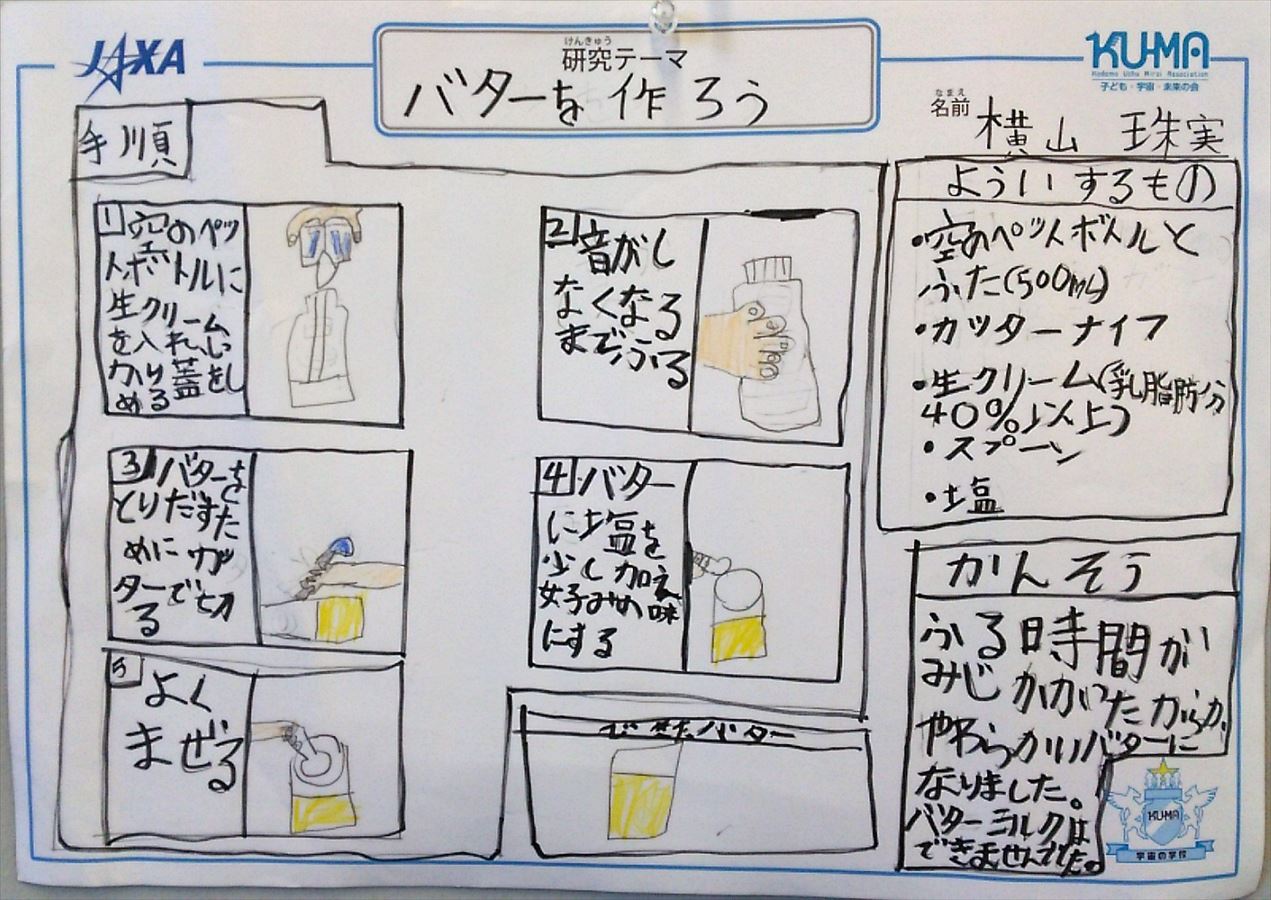 JAXA
けんきゅう
研究テーマ
バターを作ろう
KU-MA
Kodomo Uchu Mirai Association
子ども・宇宙・未来の会
なまえ
名前 横山 珠実
手順
1 空のペッ
トボトルに
生クリーム
を入れしっ
かり蓋をし
める
2 音がし
なくなる
までふる
3 バターを
とりだすた
めにカッ
ターで切
る
4 バター
に塩を
少し加え
好みの味
にする
5 よく
まぜる
できたバター
よういするもの
・空のペットボトルと
ふた(500mL)
・カッターナイフ
・生クリーム(乳脂肪分
40%以上)
・スプーン
・塩
かんそう
ふる時間が
みじかかったからか
やわらかいバターに
なりました。
バターミルクは
できませんでした。
KUMA
宇宙の学校